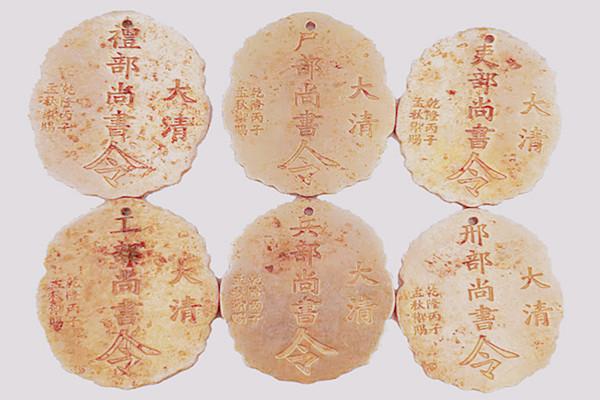 大清
禮部尚書令
乾隆丙子
孟秋御賜
大清
户部尚書令
乾隆丙子
孟秋御賜
大清
吏部尚書令
乾隆丙子
孟秋御賜
大清
工部尚書令
乾隆丙子
孟秋御賜
大清
兵部尚書令
乾隆丙子
孟秋御賜
大清
邢部尚書令
乾隆丙子
孟秋御賜